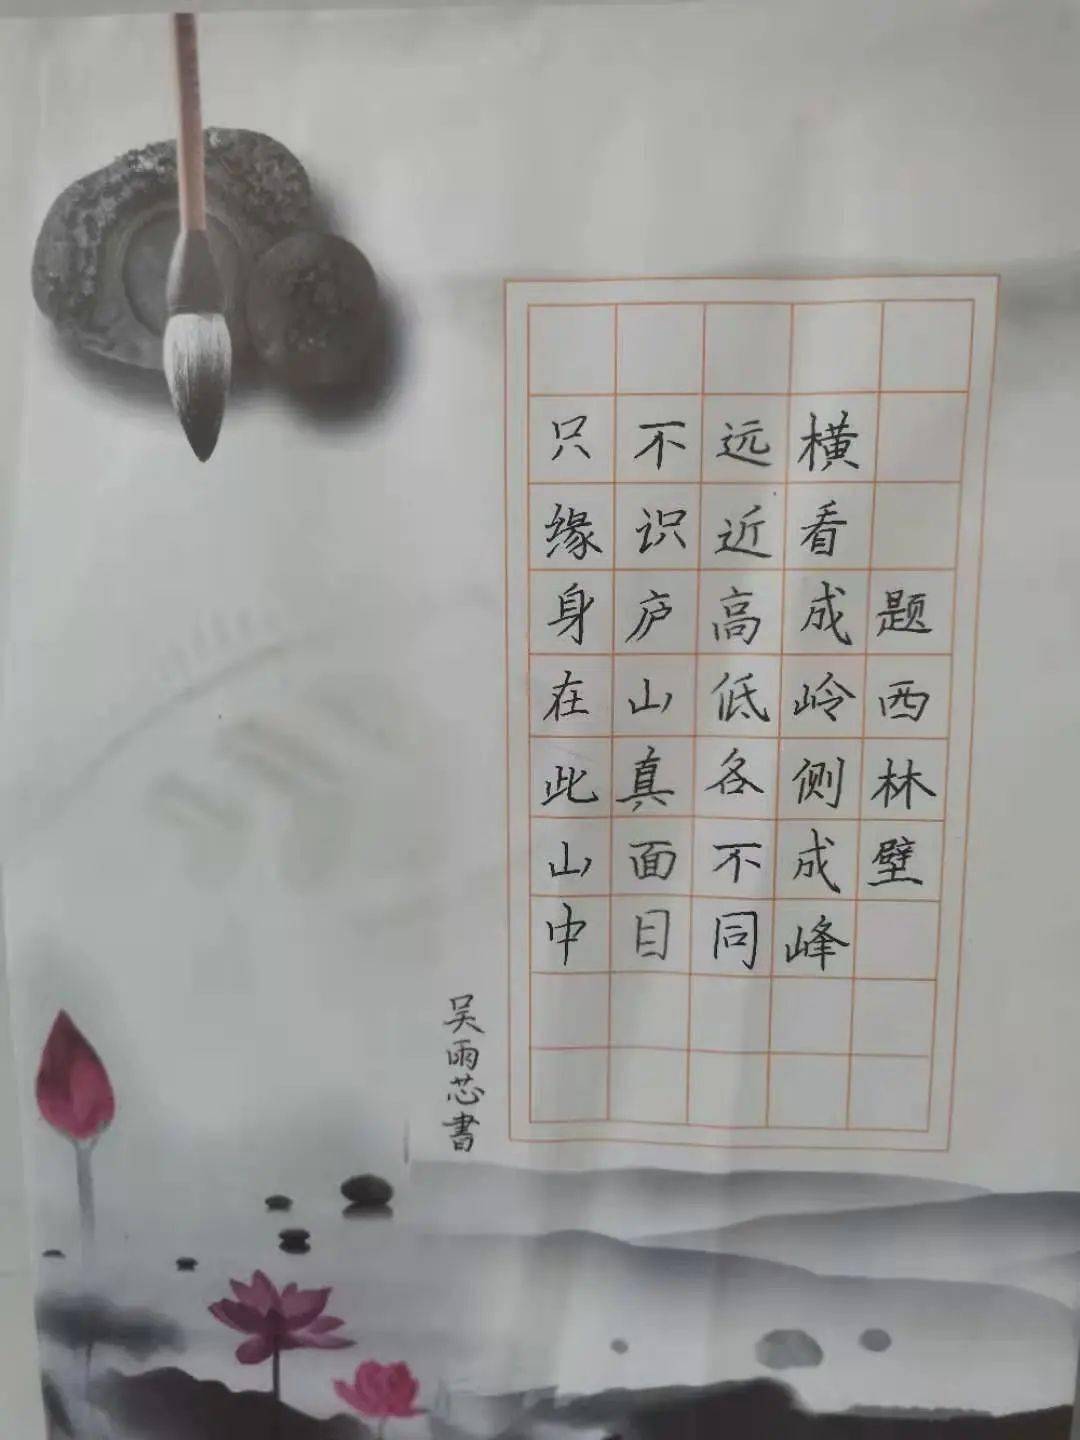 题西林壁
横看成岭侧成峰
远近高低各不同
不识庐山真面目
只缘身在此山中
吴雨芯書